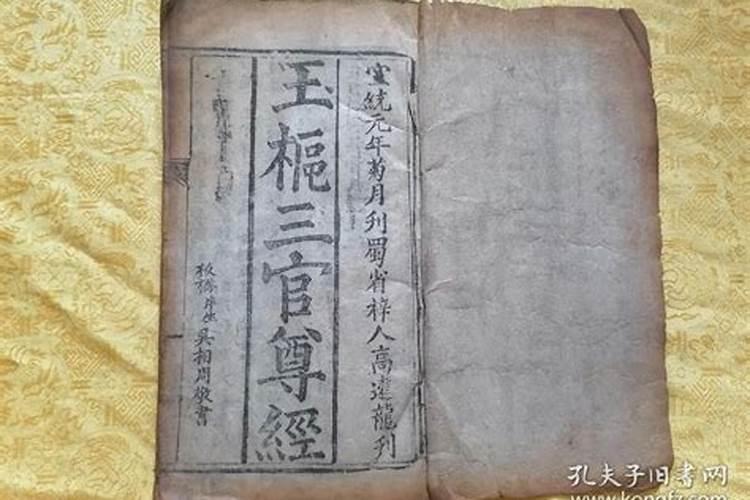 宣統元年菊月刊蜀省梓人高達龍刊
玉樞三官尊經
板橋 吳相周敬書
孔夫子旧书网